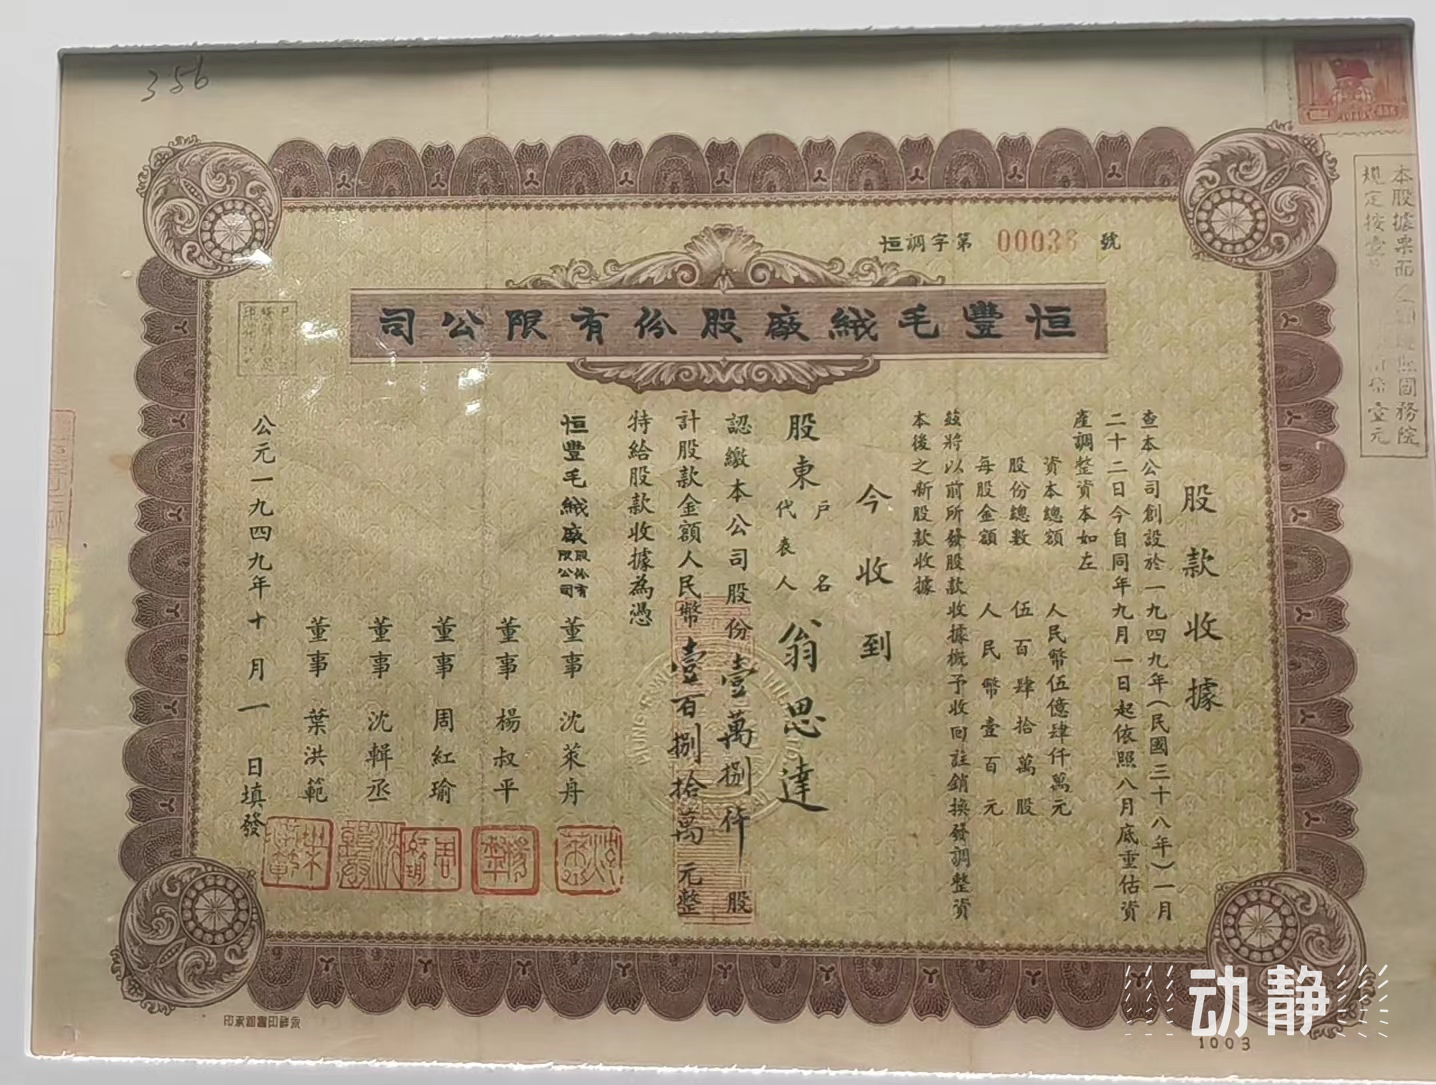 356
恒調字第 00036 號
恒豐毛絨廠股份有限公司
本股據票面
規定按壹
國務院
壹元
股款收據
查本公司創設於一九四九年(民國三十八年)一月
二十二日今自同年九月一日起依照八月底重估資
產調整資本如左
資本總額 人民幣伍億肆仟萬元
股份總數 伍百肆拾萬股
每股金額 人民幣壹百元
茲將以前所發股款收據概予收回註銷換發調整資
本後之新股款收據
今收到
股東 戶名 代表人 翁思達
認繳本公司股份壹萬捌仟股
計股款金額人民幣壹百捌拾萬元整
特給股款收據為憑
恒豐毛絨廠股份有限公司
董事 沈萊舟
董事 楊叔平
董事 周紅瑜
董事 沈輯丞
董事 葉洪範
公元一九四九年十月一日填發
动静
1003